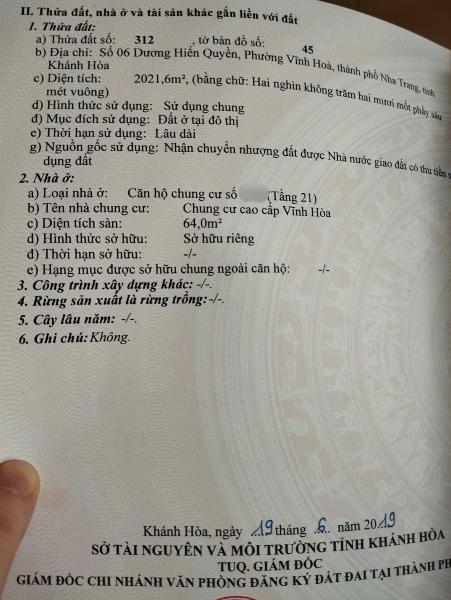 II. Thửa đất, nhà ở và tài sản khác gắn liền với đất
1. Thửa đất:
a) Thửa đất số: 312 , tờ bản đồ số: 45
b) Địa chỉ: Số 06 Dương Hiến Quyền, Phường Vĩnh Hoà, thành phố Nha Trang, tỉnh
Khánh Hòa
c) Diện tích: 2021,6m², (bằng chữ: Hai nghìn không trăm hai mươi mốt phẩy sáu
mét vuông)
d) Hình thức sử dụng: Sử dụng chung
đ) Mục đích sử dụng: Đất ở tại đô thị
e) Thời hạn sử dụng: Lâu dài
g) Nguồn gốc sử dụng: Nhận chuyển nhượng đất được Nhà nước giao đất có thu tiền
dụng đất
2. Nhà ở:
a) Loại nhà ở: Căn hộ chung cư số (Tầng 21)
b) Tên nhà chung cư: Chung cư cao cấp Vĩnh Hòa
c) Diện tích sàn: 64,0m²
d) Hình thức sở hữu: Sở hữu riêng
đ) Thời hạn sở hữu: -/-
e) Hạng mục được sở hữu chung ngoài căn hộ: -/-
3. Công trình xây dựng khác: -/-.
4. Rừng sản xuất là rừng trồng: -/-.
5. Cây lâu năm: -/-.
6. Ghi chú: Không.
Khánh Hòa, ngày 19 tháng 6 năm 2019
SỞ TÀI NGUYÊN VÀ MÔI TRƯỜNG TỈNH KHÁNH HÒA
TUQ. GIÁM ĐỐC
GIÁM ĐỐC CHI NHÁNH VĂN PHÒNG ĐĂNG KÝ ĐẤT ĐAI TẠI THÀNH PH